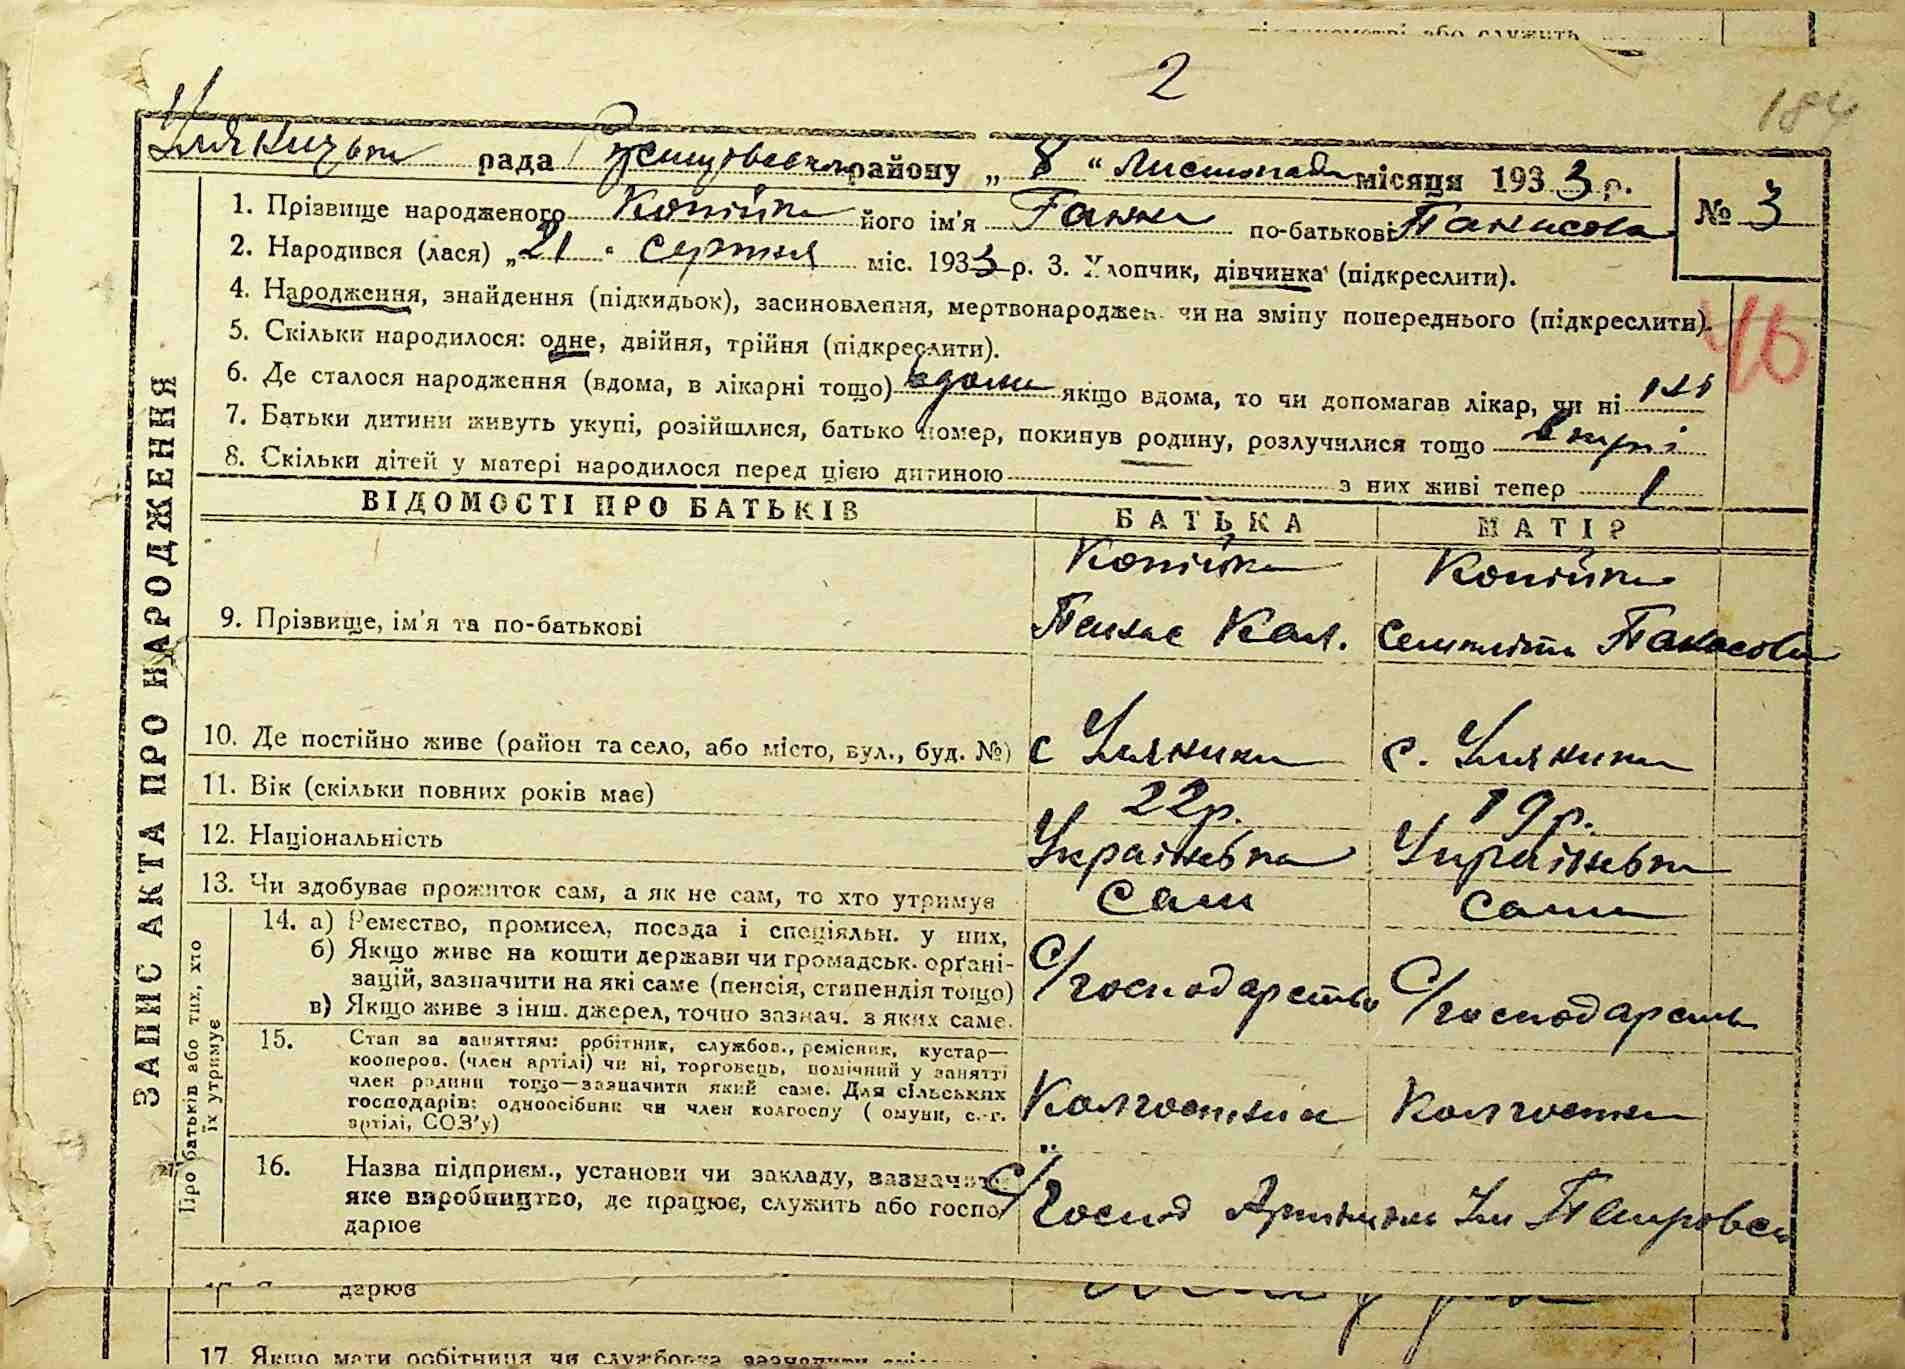 2
184
Уляницька рада Ржищівського району „ 8 “ Листопада місяця 1933 р.
№ 3
1. Прізвище народженого Копійка його ім'я Ганна по-батькові Панасова
2. Народився (лася) „21 “ серпня міс. 1933 р. 3. Хлопчик, дівчинка (підкреслити).
4. Народження, знайдення (підкидьок), засиновлення, мертвонароджен. чи на зміну попереднього (підкреслити).
46
5. Скільки народилося: одне, двійня, трійня (підкреслити).
6. Де сталося народження (вдома, в лікарні тощо) вдома якщо вдома, то чи допомагав лікар, чи ні ні
7. Батьки дитини живуть укупі, розійшлися, батько помер, покинув родину, розлучилися тощо вкупі
8. Скільки дітей у матері народилося перед цією дитиною — з них живі тепер 1
ЗАПИС АКТА ПРО НАРОДЖЕННЯ
ВІДОМОСТІ ПРО БАТЬКІВ БАТЬКА МАТІР
Копійка Копійка
9. Прізвище, ім'я та по-батькові Панас Кал. Панасова
10. Де постійно живе (район та село, або місто, вул., буд. №) с Уляники с. Уляники
11. Вік (скільки повних років має) 22р. 19р.
12. Національність Українська Українська
13. Чи здобуває прожиток сам, а як не сам, то хто утримує Сам сама
Про батьків або тих, хто їх утримує
14. а) Ремество, промисел, посада і спеціяльн. у них,
б) Якщо живе на кошти держави чи громадськ. орґані-
зацій, зазначити на які саме (пенсія, стипендія тощо) С/господарство С/господарство
в) Якщо живе з інш. джерел, точно зазнач. з яких саме.
15. Стан за заняттям: робітник, службов., ремісник, кустар—
кооперов. (член артілі) чи ні, торговець, помічний у занятті
член родини тощо—зазначити який саме. Для сільських
господарів: одноосібник чи член колгоспу ( омуни, с.-г.
артілі, СОЗ'у) Колгоспник Колгоспни
16. Назва підприєм., установи чи закладу, зазначити
яке виробництво, де працює, служить або госпо
дарює С/Господ Артіль Ім
дарює
17. Якщо мати робітниця чи службовка зазначити